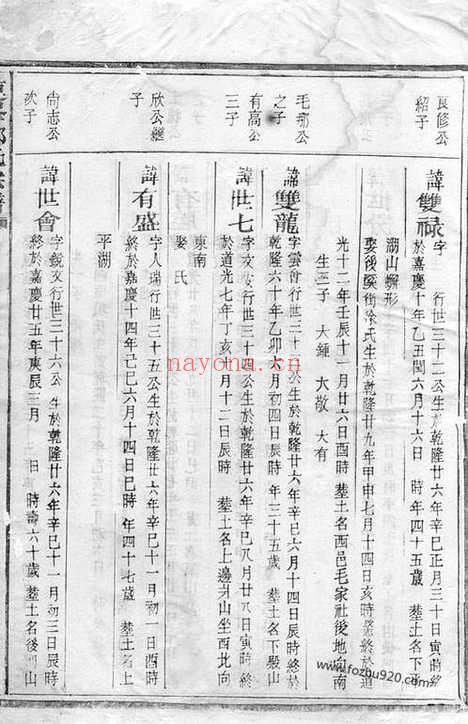 良修公
紹子
諱雙祿
字 行世三十二公生於乾隆廿六年辛巳正月三十日寅時終
於嘉慶十年乙丑閏六月十六日 時年四十五歲 墓土名下
湖山 形
娶後溪街徐氏生於乾隆廿九年甲申七月十四日亥時終於道
光十二年壬辰十一月廿六日酉時 墓土名西邑毛家社後地向南
生三子 大鍾 大敬 大有
毛 公
之子
諱雙龍
字雲 行世三十 公生於乾隆廿六年辛巳六月十四日辰時終於
乾隆六十年乙卯六月初四日辰時年三十五歲 墓土名下嚴山
有高公
三子
諱世七
字文 行世三十四公生於乾隆廿六年辛巳八月廿八日寅時終
於道光七年丁亥十月十二日辰時 墓土名上邊 山坐西北向
東南
娶氏
欣公繼
子
諱有盛
字人瑞行世三十五公生於乾隆廿六年辛巳十一月初一日酉時
終於嘉慶十四年己巳六月十四日巳時年四十七歲 墓土名上
平湖
尚志公
次子
諱世會
字銳 行世三十六公 生於乾隆廿六年辛巳十一月初三日辰時
終於嘉慶廿五年庚辰三月 日 時壽六十歲 墓土名後 山
nayona.cn
www.fozhu920.com